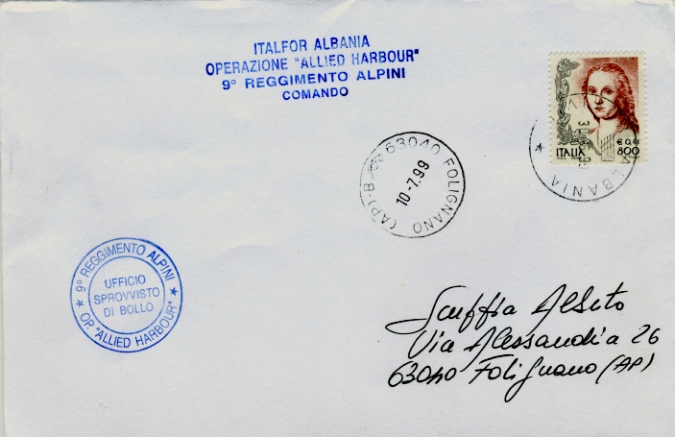 ITALFOR ALBANIA
OPERAZIONE "ALLIED HARBOUR"
9° REGGIMENTO ALPINI
COMANDO
ITALIA
800
ALBANIA
63040 FOLIGNANO (AP)-B
10-7.99
* 9° REGGIMENTO ALPINI *
UFFICIO
SPROVVISTO
DI BOLLO
OP. "ALLIED HARBOUR"
Via Alessandria 26
63040 Folignano (AP)